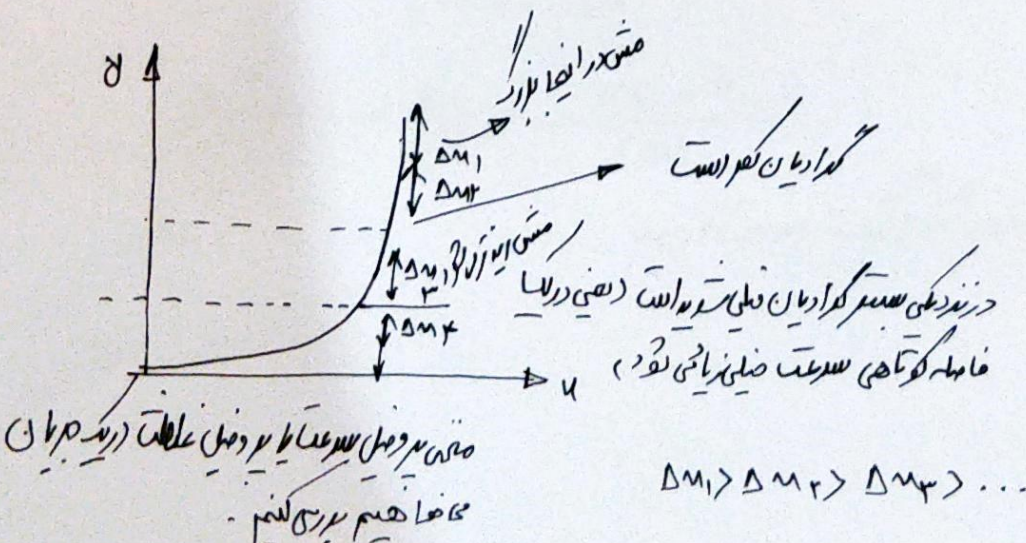 y
مش در اینجا بزرگ
Δx₁
Δx₂
گرادیان کمتر است
مش ریزتر
Δx₃
Δx₄
در نزدیکی بستر گرادیان خیلی شدید است (یعنی در یک
فاصله کوتاهی سرعت خیلی زیاد می‌شود)
منحنی پروفیل سرعت یا پروفیل غلظت در یک جریان
می‌خواهیم بررسی کنیم.
Δx₁ > Δx₂ > Δx₃ > ...